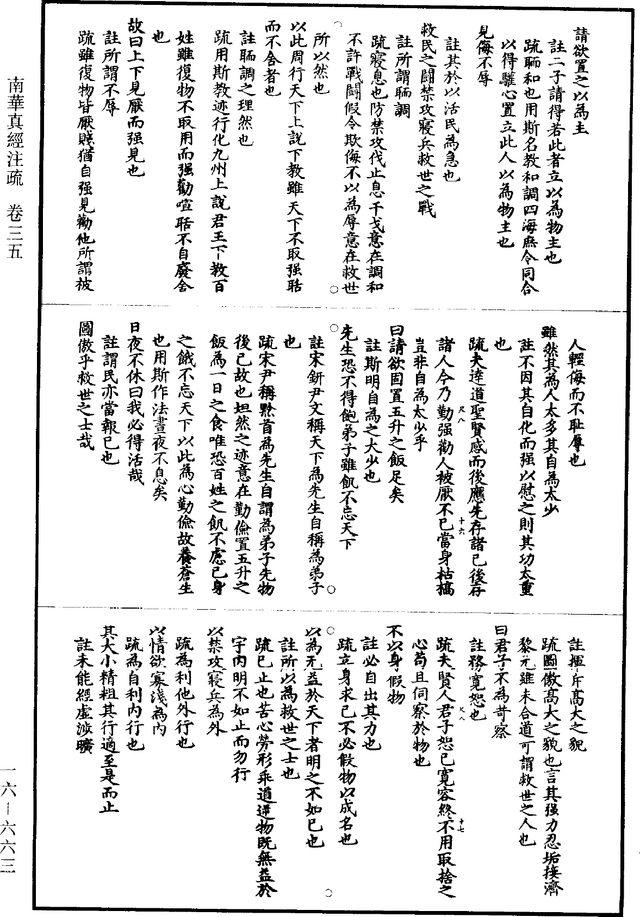 南華真經注疏　卷三五
請欲置之以為主
註二子請得若此者立以為物主也
疏聏和也用斯名教和調四海庶令同合
以得驩心置立此人以為物主也
見侮不辱
註其於以活民為急也
救民之鬪禁攻寢兵救世之戰
註所謂聏調
疏寢息也防禁攻伐止息干戈意在調和
不許戰鬪假令欺侮不以為辱意在救世
所以然也
以此周行天下上說下教雖天下不取强聒
而不舍者也
註聏調之理然也
疏用斯教迹行化九州上說君王下教百
姓雖復物不取用而强勸喧聒不自廢舍
也
故曰上下見厭而强見也
註所謂不辱
疏雖復物皆厭賤猶自强見勸他所謂被
人輕侮而不恥辱也
雖然其為人太多其自為太少
註不因其自化而强以慰之則其功太重
也
疏夫達道聖賢感而後應先存諸己後存
諸人今乃勤强勸人被厭不已當身枯槁
豈非自為太少乎
曰請欲固置五升之飯足矣
註斯明自為之大少也
先生恐不得飽弟子雖飢不忘天下
註宋鈃尹文稱天下為先生自稱為弟子
也
疏宋尹稱黔首為先生自謂為弟子先物
後己故也坦然之迹意在勤儉置五升之
飯為一日之食唯恐百姓之飢不慮己身
之餓不忘天下以此為心勤儉故養蒼生
也用斯作法晝夜不息矣
日夜不休曰我必得活哉
註謂民亦當報己也
圖傲乎救世之士哉
註揮斥高大之貌
疏圖傲高大之貌也言其强力忍垢接濟
黎元雖未合道可謂救世之人也
曰君子不為苛察
註務寬恕也
疏夫賢人君子恕己寬容終不用取捨之
心苟且伺察於物也
不以身假物
註必自出其力也
疏立身求己不必假物以成名也
以為无益於天下者明之不如已也
註所以為救世之士也
疏已止也苦心勞形乖道逆物既無益於
宇内明不如止而勿行
以禁攻寢兵為外
疏為利他外行也
以情欲寡淺為内
疏為自利内行也
其大小精粗其行適至是而止
註未能經虛涉曠
一六—六六三